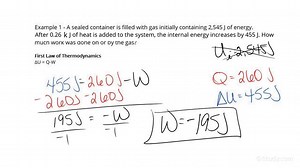 Example 1 - A sealed container is filled with gas initially containing 2,545 J of energy.
After 0.26 kJ of heat is added to the system, the internal energy increases by 455 J. How
much work was done on or by the gas?
First Law of Thermodynamics
ΔU = Q-W
Uᵢ = 2,545J
455J = 260J - W
Q = 260J
-260J -260J
ΔU = 455J
195J = -W
-1 -1
W = -195J